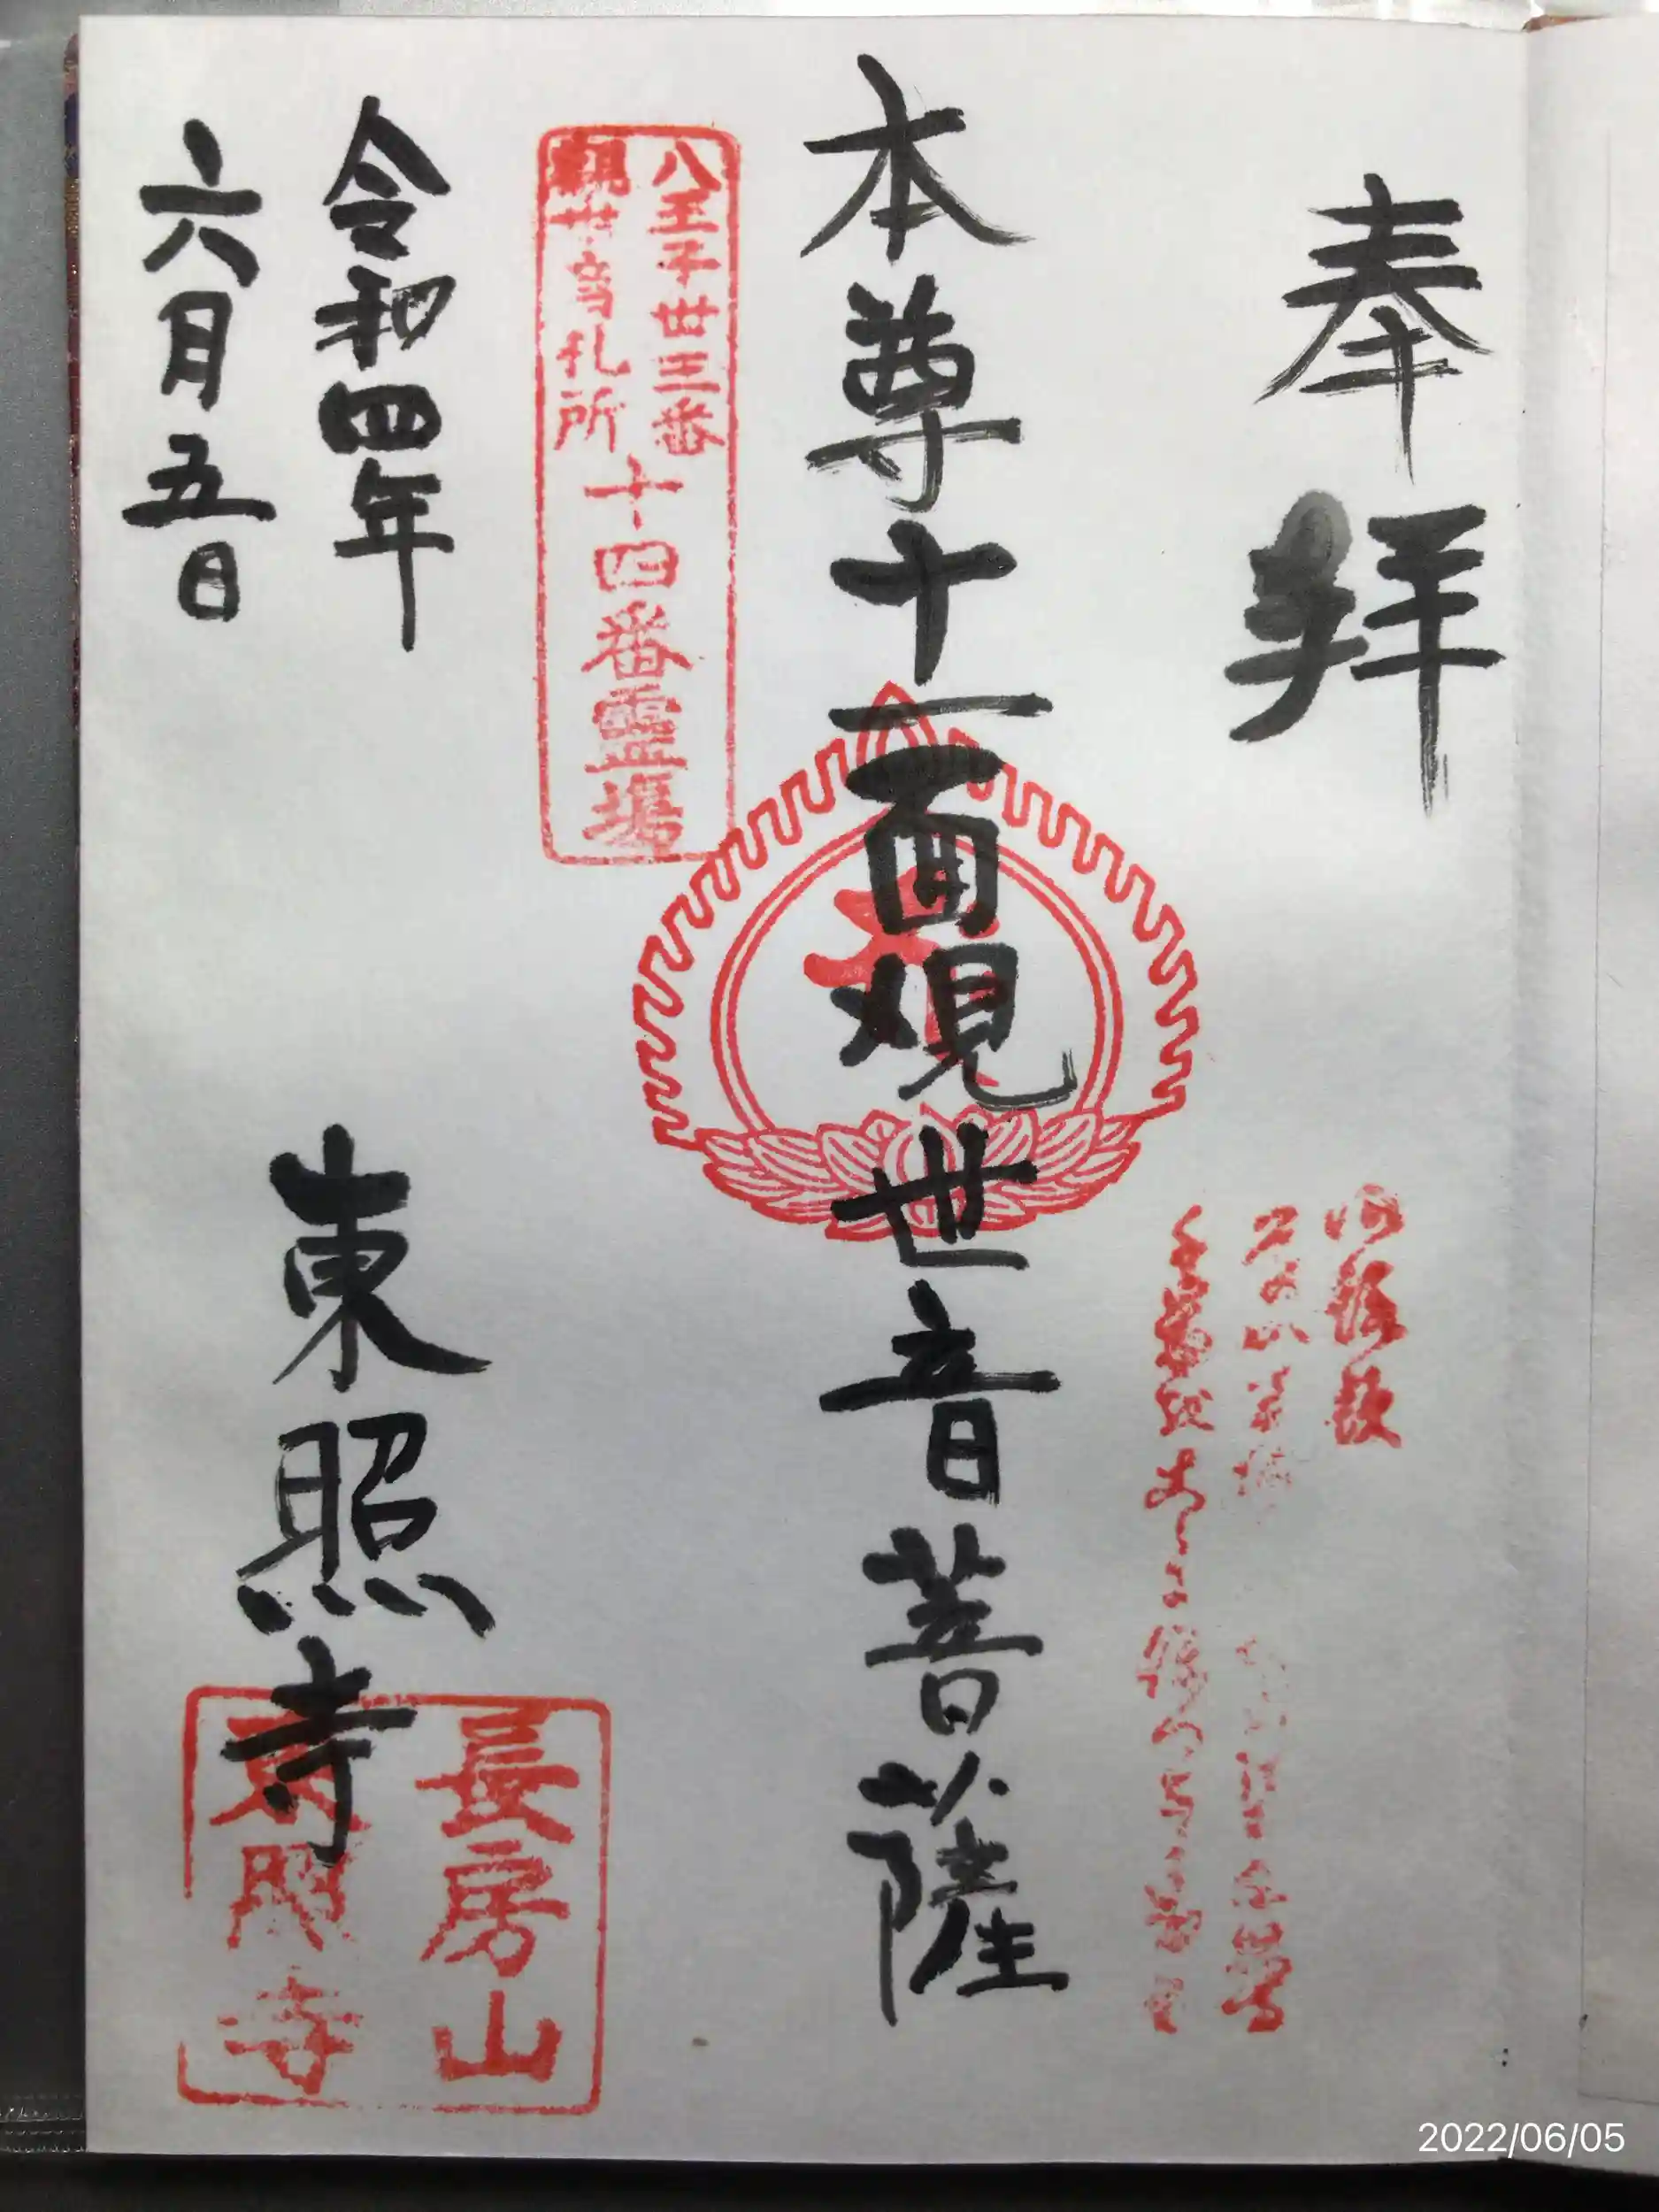 奉拝
本尊十一面観世音菩薩
八王子卅三番
観世音札所
十四番霊場
令和四年
六月五日
東照寺
長房山
東照寺
2022/06/05